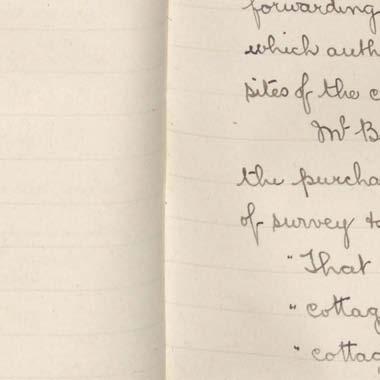 forwarding
which auth
sites of the c
Mr B
the purcha
of survey to
"That
"cottag
"cottag